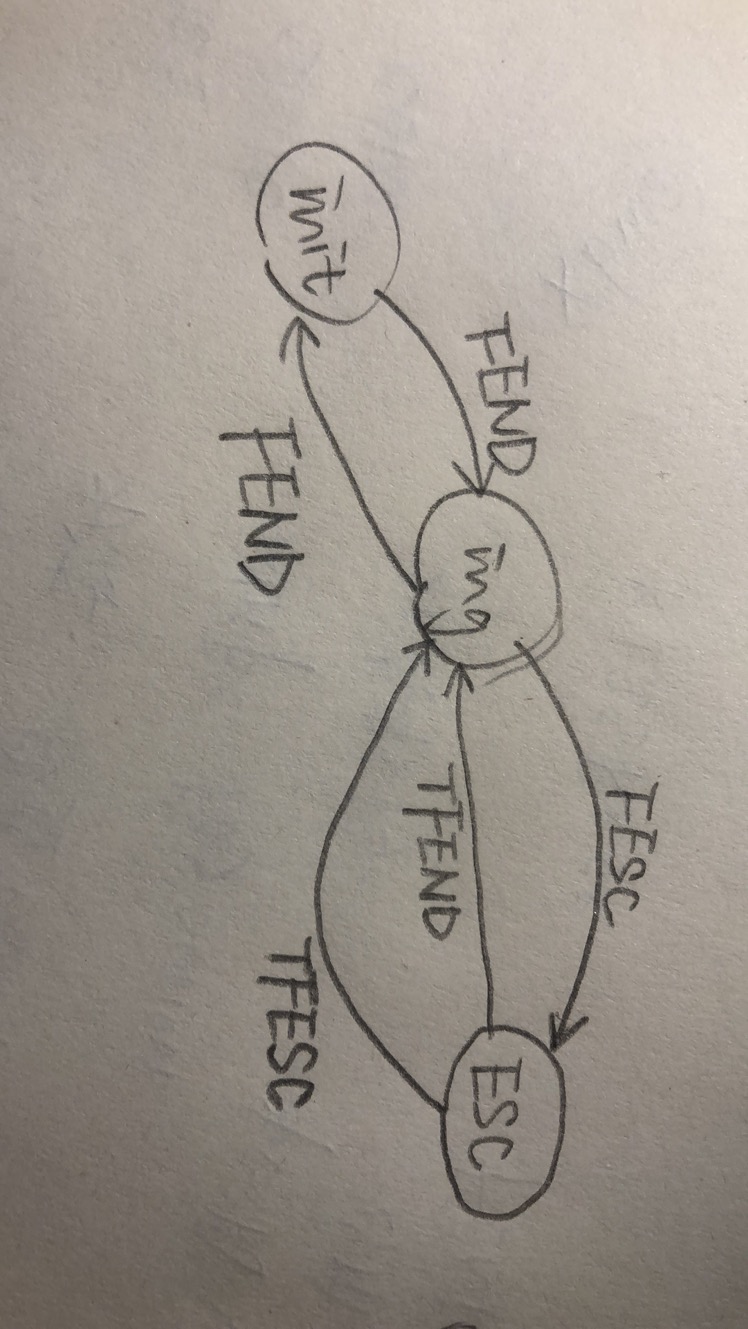 init
FEND
FEND
ing
FESC
TFEND
TFESC
ESC